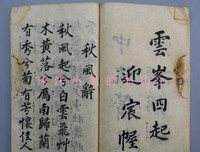 雲峯四起
迎宸幄
秋風辭
秋風起兮白雲飛艸
木黄落兮鴈南歸蘭
有秀兮菊有芳懷佳人